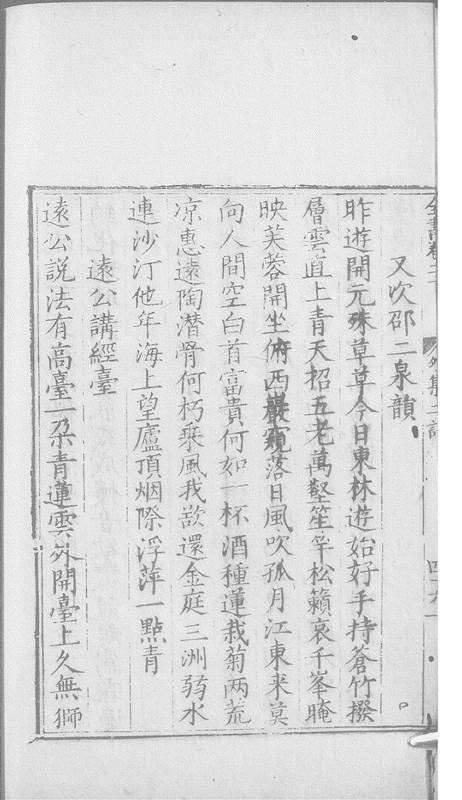 全書卷二十 外集二 詩
又次邵二泉韻
昨遊開元殊草草今日東林遊始好手持蒼竹撥
層雲直上青天招五老萬壑笙竽松籟哀千峯晻
映芙蓉開坐俯西巖窺落日風吹孤月江東來莫
向人間空白首富貴何如一杯酒種蓮栽菊兩荒
凉惠遠陶潛骨何朽乘風我欲還金庭三洲弱水
連沙汀他年海上望廬頂烟際浮萍一點青
遠公講經臺
遠公説法有高臺一朶青蓮雲外開臺上久無獅